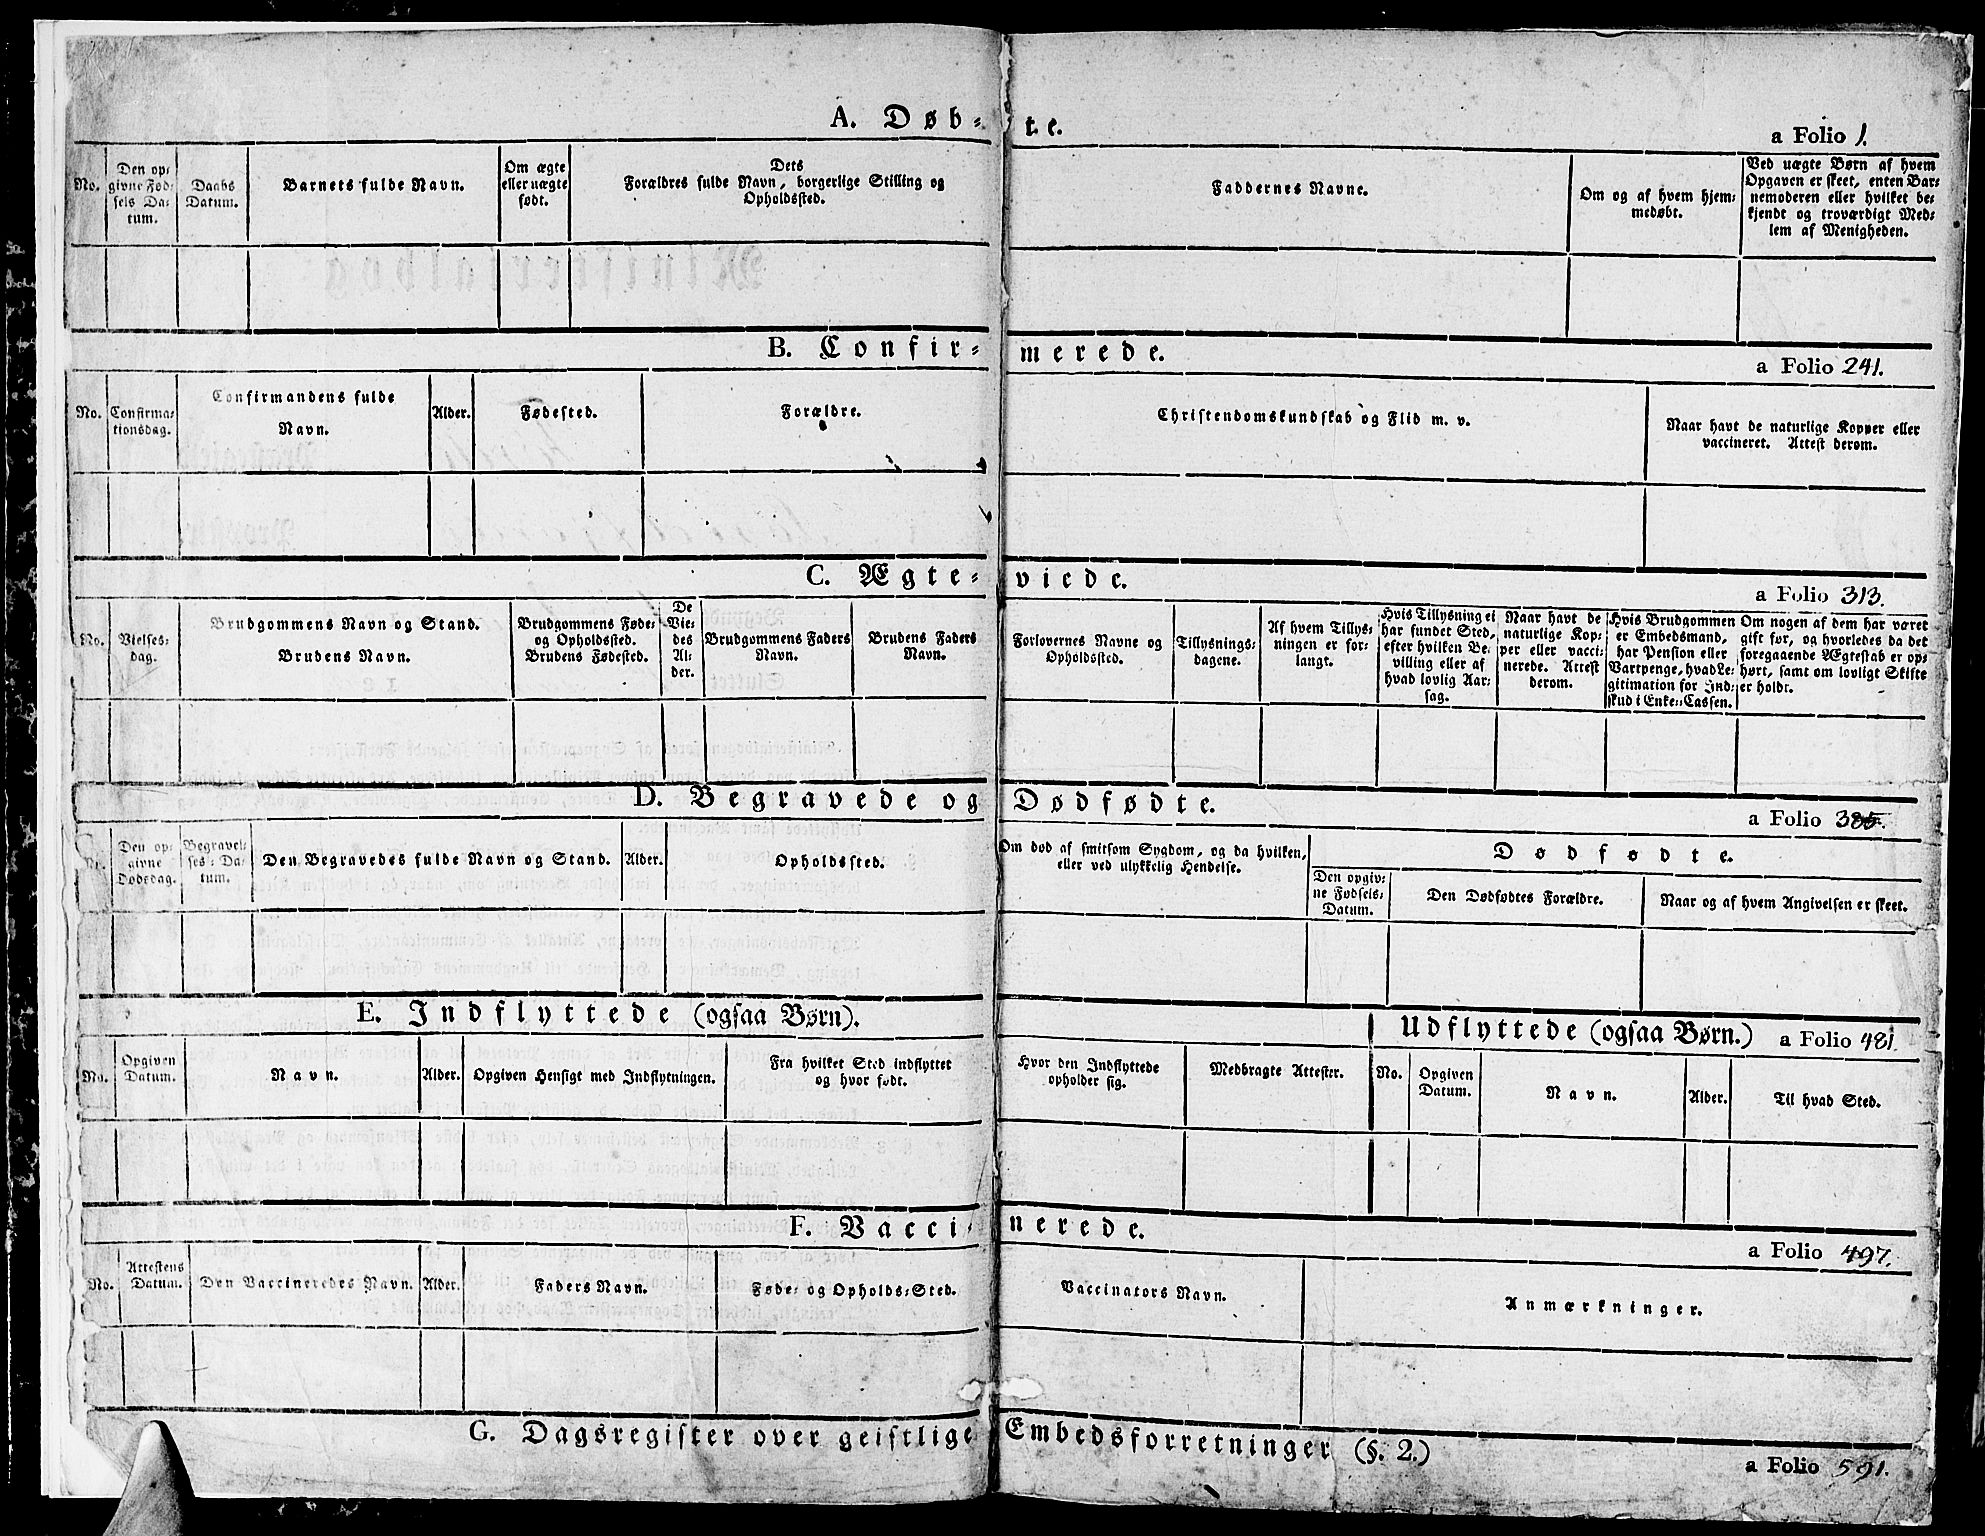 A. Døb-te.
a Folio 1.
No.
Den op-
givne Fød-
sels Da-
tum.
Daabs
Datum.
Barnets fulde Navn.
Om ægte
eller uægte
født.
Dets
Forældres fulde Navn, borgerlige Stilling og
Opholdssted.
Faddernes Navne.
Om og af hvem hjem-
medøbt.
Ved uægte Børn af hvem
Opgaven er skeet, enten Bar-
nemoderen eller hvilket be-
kjendt og troværdigt Med-
lem af Menigheden.
B. Confir-merede.
a Folio 241.
No.
Confirma-
tionsdag.
Confirmandens fulde
Navn.
Alder.
Fødested.
Forældre.
Christendomskundskab og Flid m. v.
Naar havt de naturlige Kopper eller
vaccineret. Attest derom.
C. Ægte-viede.
a Folio 313.
No.
Vielses-
dag.
Brudgommens Navn og Stand.
Brudens Navn.
Brudgommens Føde-
og Opholdssted.
Brudens Fødested.
De
Vie-
des
Al-
der.
Brudgommens Faders
Navn.
Brudens Faders
Navn.
Forlovernes Navne og
Opholdssted.
Tillysnings-
dagene.
Af hvem Tillys-
ningen er for-
langt.
Hvis Tillysning ei
har fundet Sted,
efter hvilken Be-
villing eller af
hvad lovlig Aar-
sag.
Naar havt de
naturlige Kop-
per eller vacci-
nerede. Attest
derom.
Hvis Brudgommen
er Embedsmand,
har Pension eller
Vartpenge, hvad Le-
gitimation for Ind-
skud i Enke-Cassen.
Om nogen af dem har været
gift før, og hvorledes da det
foregaaende Ægtestab er op-
hørt, samt om lovligt Skifte
er holdt.
D. Begravede og Dødfødte.
a Folio 385.
No.
Den op-
givne
Dødsdag.
Begravel-
ses-Da-
tum.
Den Begravedes fulde Navn og Stand.
Alder.
Opholdssted.
Om død af smitsom Sygdom, og da hvilken,
eller ved ulykkelig Hendelse.
Dødfødte.
Den opgiv-
ne Fødsels-
Datum.
Den Dødfødtes Forældre.
Naar og af hvem Angivelsen er skeet.
E. Indflyttede (ogsaa Børn).
Udflyttede (ogsaa Børn.) a Folio 481.
No.
Opgiven
Datum.
Navn.
Alder.
Opgiven Hensigt med Indflytningen.
Fra hvilket Sted indflyttet
og hvor født.
Hvor den Indflyttede
opholder sig.
Medbragte Attester.
No.
Opgiven
Datum.
Navn.
Alder.
Til hvad Sted.
F. Vacci-nerede.
a Folio 497.
No.
Attestens
Datum.
Den Vaccineredes Navn.
Alder.
Faders Navn.
Føde- og Opholds-Sted.
Vaccinators Navn.
Anmærkninger.
G. Dagsregister over geistlige Embedsforretninger (§. 2.)
a Folio 591.